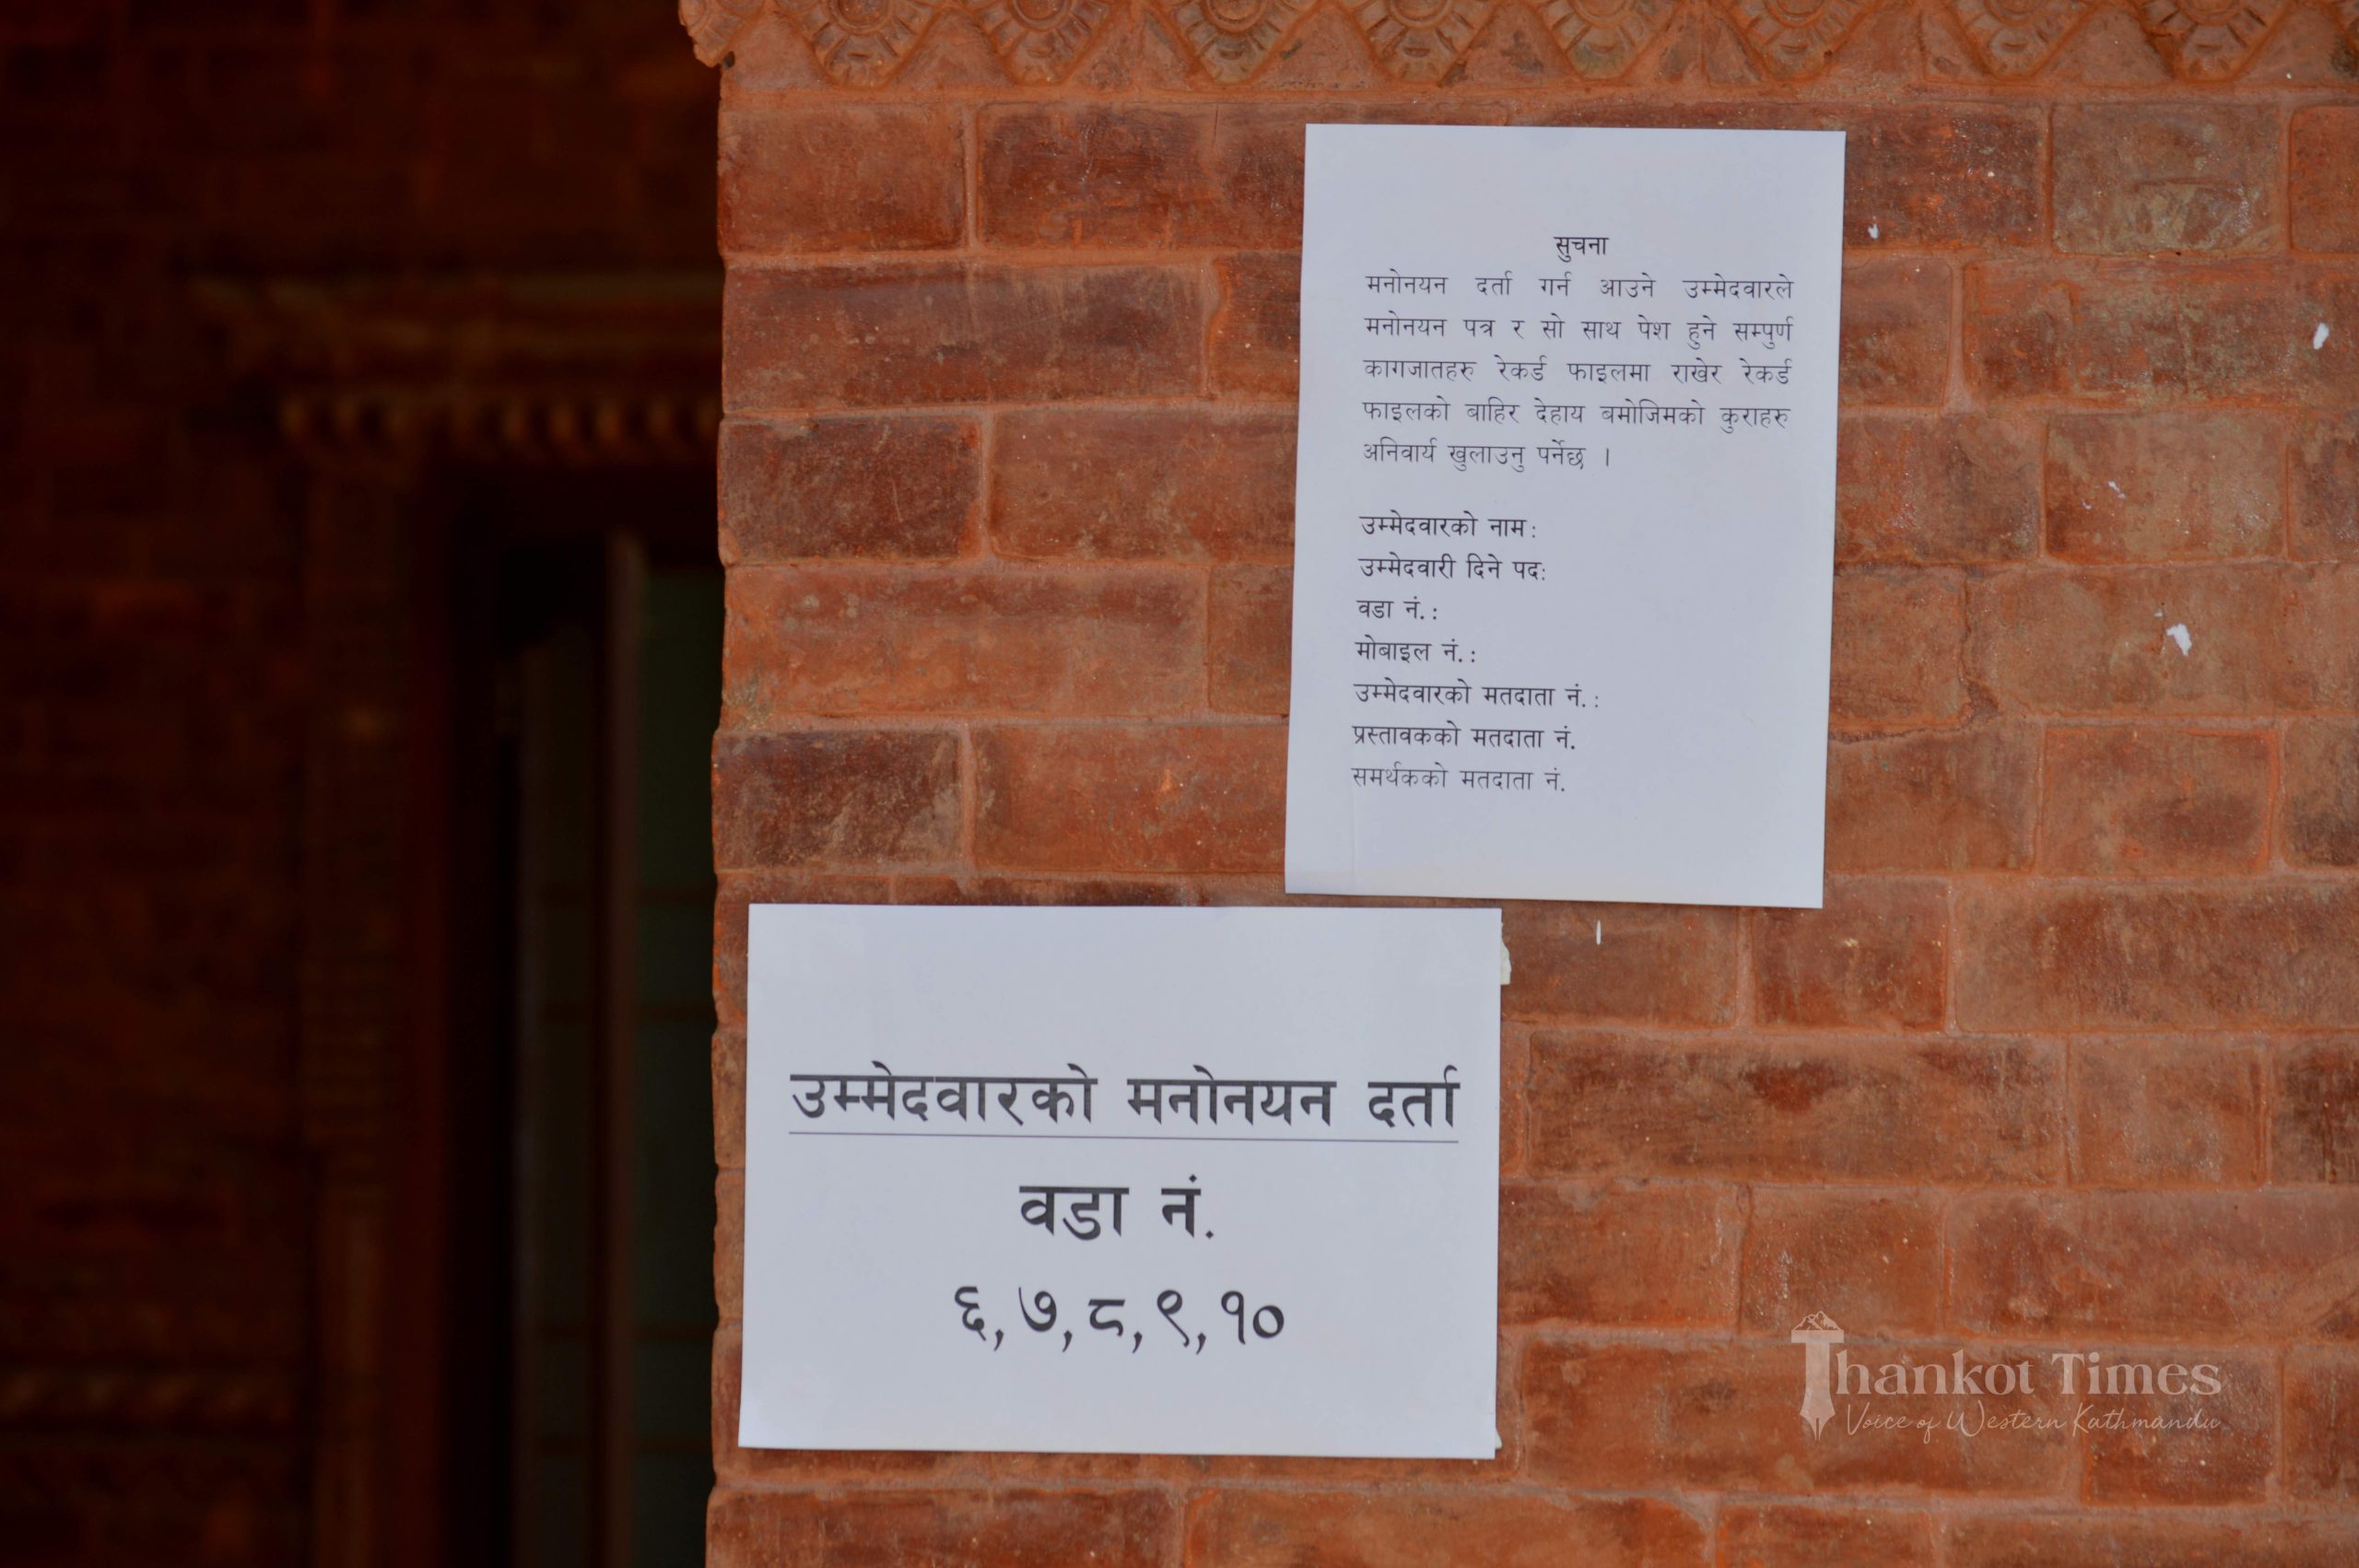 सुचना
मनोनयन दर्ता गर्न आउने उम्मेदवारले
मनोनयन पत्र र सो साथ पेश हुने सम्पुर्ण
कागजातहरु रेकर्ड फाइलमा राखेर रेकर्ड
फाइलको बाहिर देहाय बमोजिमको कुराहरु
अनिवार्य खुलाउनु पर्नेछ ।
उम्मेदवारको नाम:
उम्मेदवारी दिने पद:
वडा नं.:
मोबाइल नं.:
उम्मेदवारको मतदाता नं.:
प्रस्तावकको मतदाता नं.
समर्थकको मतदाता नं.
उम्मेदवारको मनोनयन दर्ता
वडा नं.
६, ७, ८, ९, १०
Thankot Times
Voice of Western Kathmandu